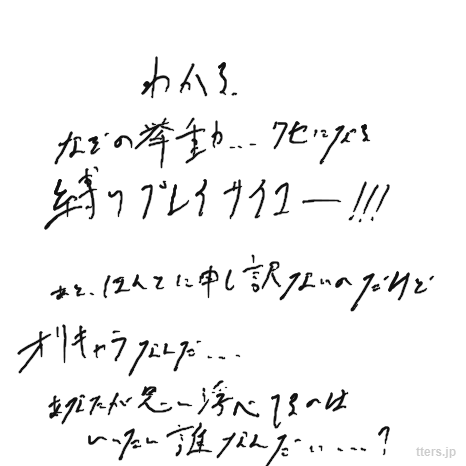 わかる。
なぞの挙動… クセになる
縛りプレイサイコー!!!
あと、ほんとに申し訳ないのだけど
オリキャラなんだ…
あなたが思い浮べてるのは
いったい誰なんだい…?
tters.jp